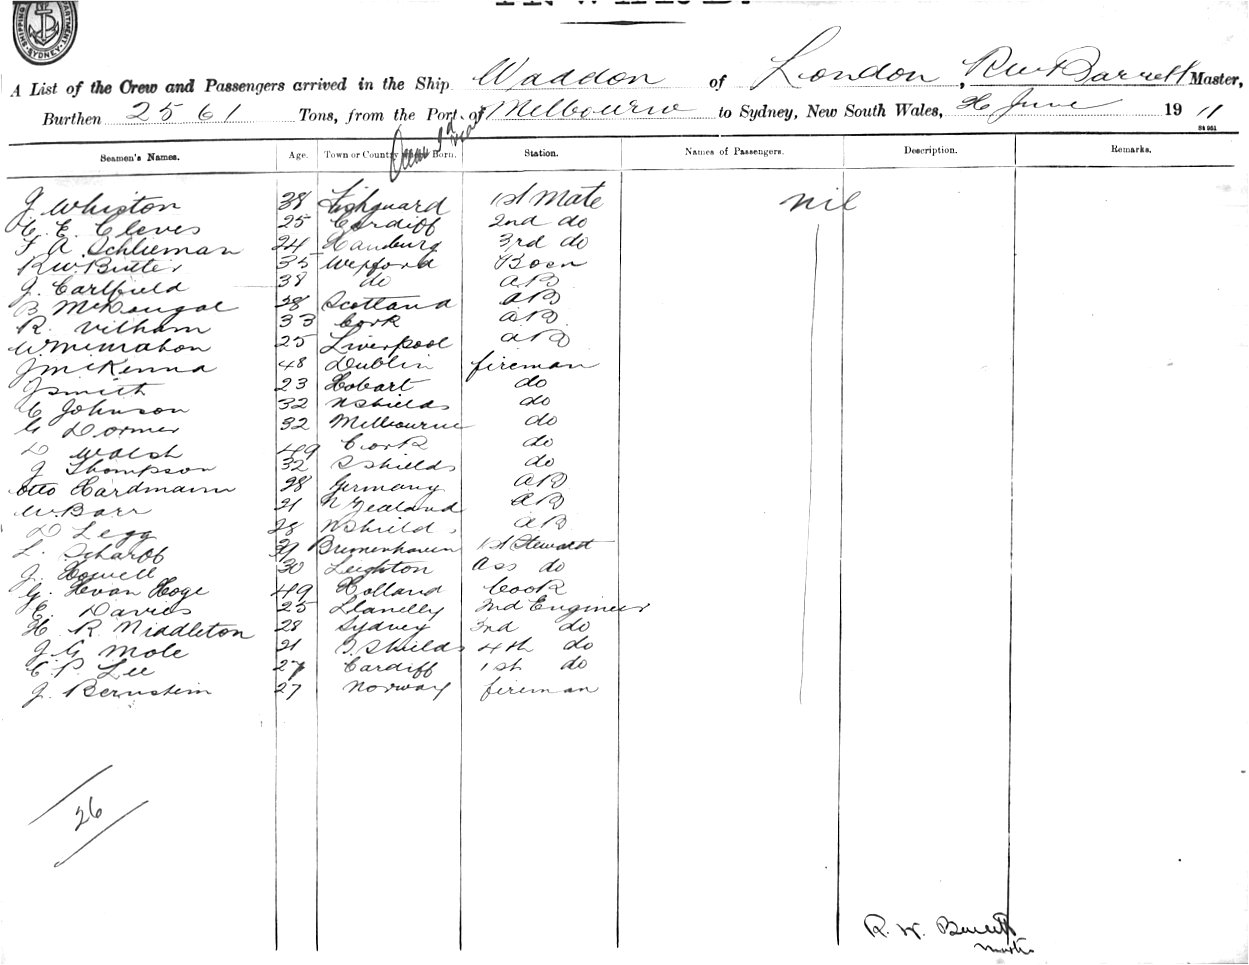 SHIPPING DEPARTMENT SYDNEY
INWARD.
A List of the Crew and Passengers arrived in the Ship Waddon of London, RW Barrett Master,
Burthen 2561 Tons, from the Port of Melbourne to Sydney, New South Wales, 26 June 1911
Seamen's Names. Age. Town or Country Born. Station. Names of Passengers. Description. Remarks.
J Whiston 38 Fishguard 1st Mate nil
C. E. Cleves 25 Cardiff 2nd do
F A Schlieman 24 Hamburg 3rd do
R W Butler 35 Wexford Bosn
J. Carlfield 38 do AB
B McDougal 28 Scotland AB
R. Vilham 33 Cork AB
W McMahon 25 Liverpool AB
J McKenna 48 Dublin fireman
J Smith 23 Hobart do
C Johnson 32 N Shields do
G Dormer 32 Melbourne do
D Walsh 49 Cork do
J Thompson 32 S Shields do
Otto Hardmann 28 Germany AB
W. Barr 21 N Zealand AB
D Legg 28 N Shields AB
L. Scharff 39 Bremenhaven 1st Steward
J. Howell 30 Leighton Ass do
G. H van Hoge 49 Holland Cook
E. Davies 25 Llanelly 2nd Engineer
H. R. Middleton 28 Sydney 3rd do
J. G Mole 21 S. Shields 4th do
C P. Lee 27 Cardiff 1st do
J. Bernstein 27 Norway fireman
26
R. W. Barrett
Master